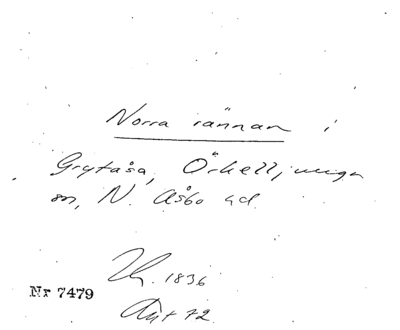 Norra rännan i
Grytåsa, Örkelljunga
sn, N. Åsbo hd.
1836
Nr 7479
72